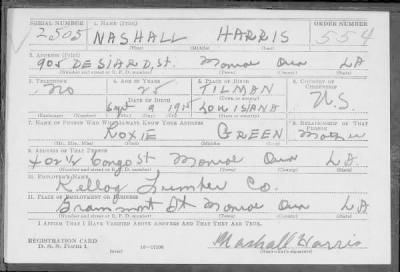 SERIAL NUMBER 1. NAME (Print) ORDER NUMBER
2505 NASHALL HARRIS 554
(First) (Middle) (Last)
2. ADDRESS (Print)
905 DESIARD, St. Monroe Oua LA
(Number and street or R. F. D. number) (Town) (County) (State)
3. TELEPHONE 4. AGE IN YEARS 5. PLACE OF BIRTH 6. COUNTRY OF CITIZENSHIP
No 25 TILMAN U.S.
DATE OF BIRTH
1915 LOUISIANA
7. NAME OF PERSON WHO WILL ALWAYS KNOW YOUR ADDRESS 8. RELATIONSHIP OF THAT PERSON
ROXIE GREEN Mother
(Mr., Mrs., Miss) (First) (Middle) (Last)
9. ADDRESS OF THAT PERSON
Congo St Monroe Oua LA.
(Number and street or R. F. D. number) (Town) (County) (State)
10. EMPLOYER'S NAME
Kellog Lumber Co.
11. PLACE OF EMPLOYMENT OR BUSINESS
St Monroe Oua LA.
(Number and street or R. F. D. number) (Town) (County) (State)
I AFFIRM THAT I HAVE VERIFIED ABOVE ANSWERS AND THAT THEY ARE TRUE.
REGISTRATION CARD
D. S. S. Form 1 (over) Nashall Harris